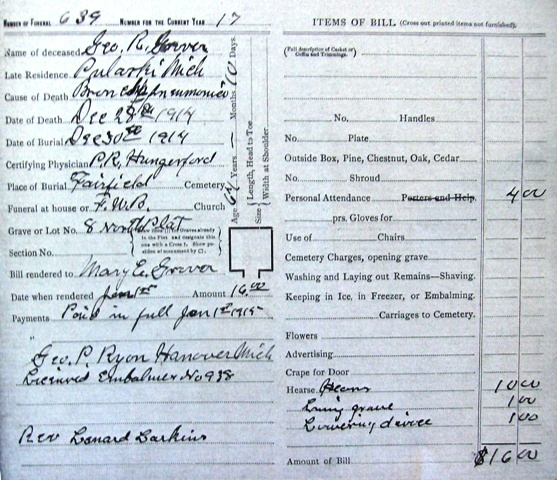 NUMBER OF FUNERAL 639 NUMBER FOR THE CURRENT YEAR 17
Name of deceased Geo. R. Grover
Late Residence Pulaski Mich
Cause of Death Bronch Pneumonia
Date of Death Dec 28th 1914
Date of Burial Dec 30th 1914
Certifying Physician P.R. Hungerford
Place of Burial Fairfield Cemetery
Funeral at house or F.W.B. Church
Grave or Lot No. 8 North Plat
Section No.
Bill rendered to Mary E. Grover
Date when rendered Jan 1st Amount 16.00
Payments Paid in full Jan 1st 1915
"
Geo. P. Ryon Hanover Mich
Licensed Embalmer No 938
Rev Lonard Larkins
Age Years Months 10 Days.
Size Length, Head to Toe.
Width at Shoulder
ITEMS OF BILL (Cross out printed items not furnished).
(Full description of Casket or
Coffin and Trimmings.
No. Handles
No. Plate
Outside Box, Pine, Chestnut, Oak, Cedar
No. Shroud
Personal Attendance Porters and Help. 4 00
prs. Gloves for
Use of Chairs
Cemetery Charges, opening grave
Washing and Laying out Remains—Shaving.
Keeping in Ice, in Freezer, or Embalming.
Carriages to Cemetery.
Flowers
Advertising
Crape for Door
Hearse 10 00
Lining grave 1 00
Lowering device 1 00
Amount of Bill $16 00